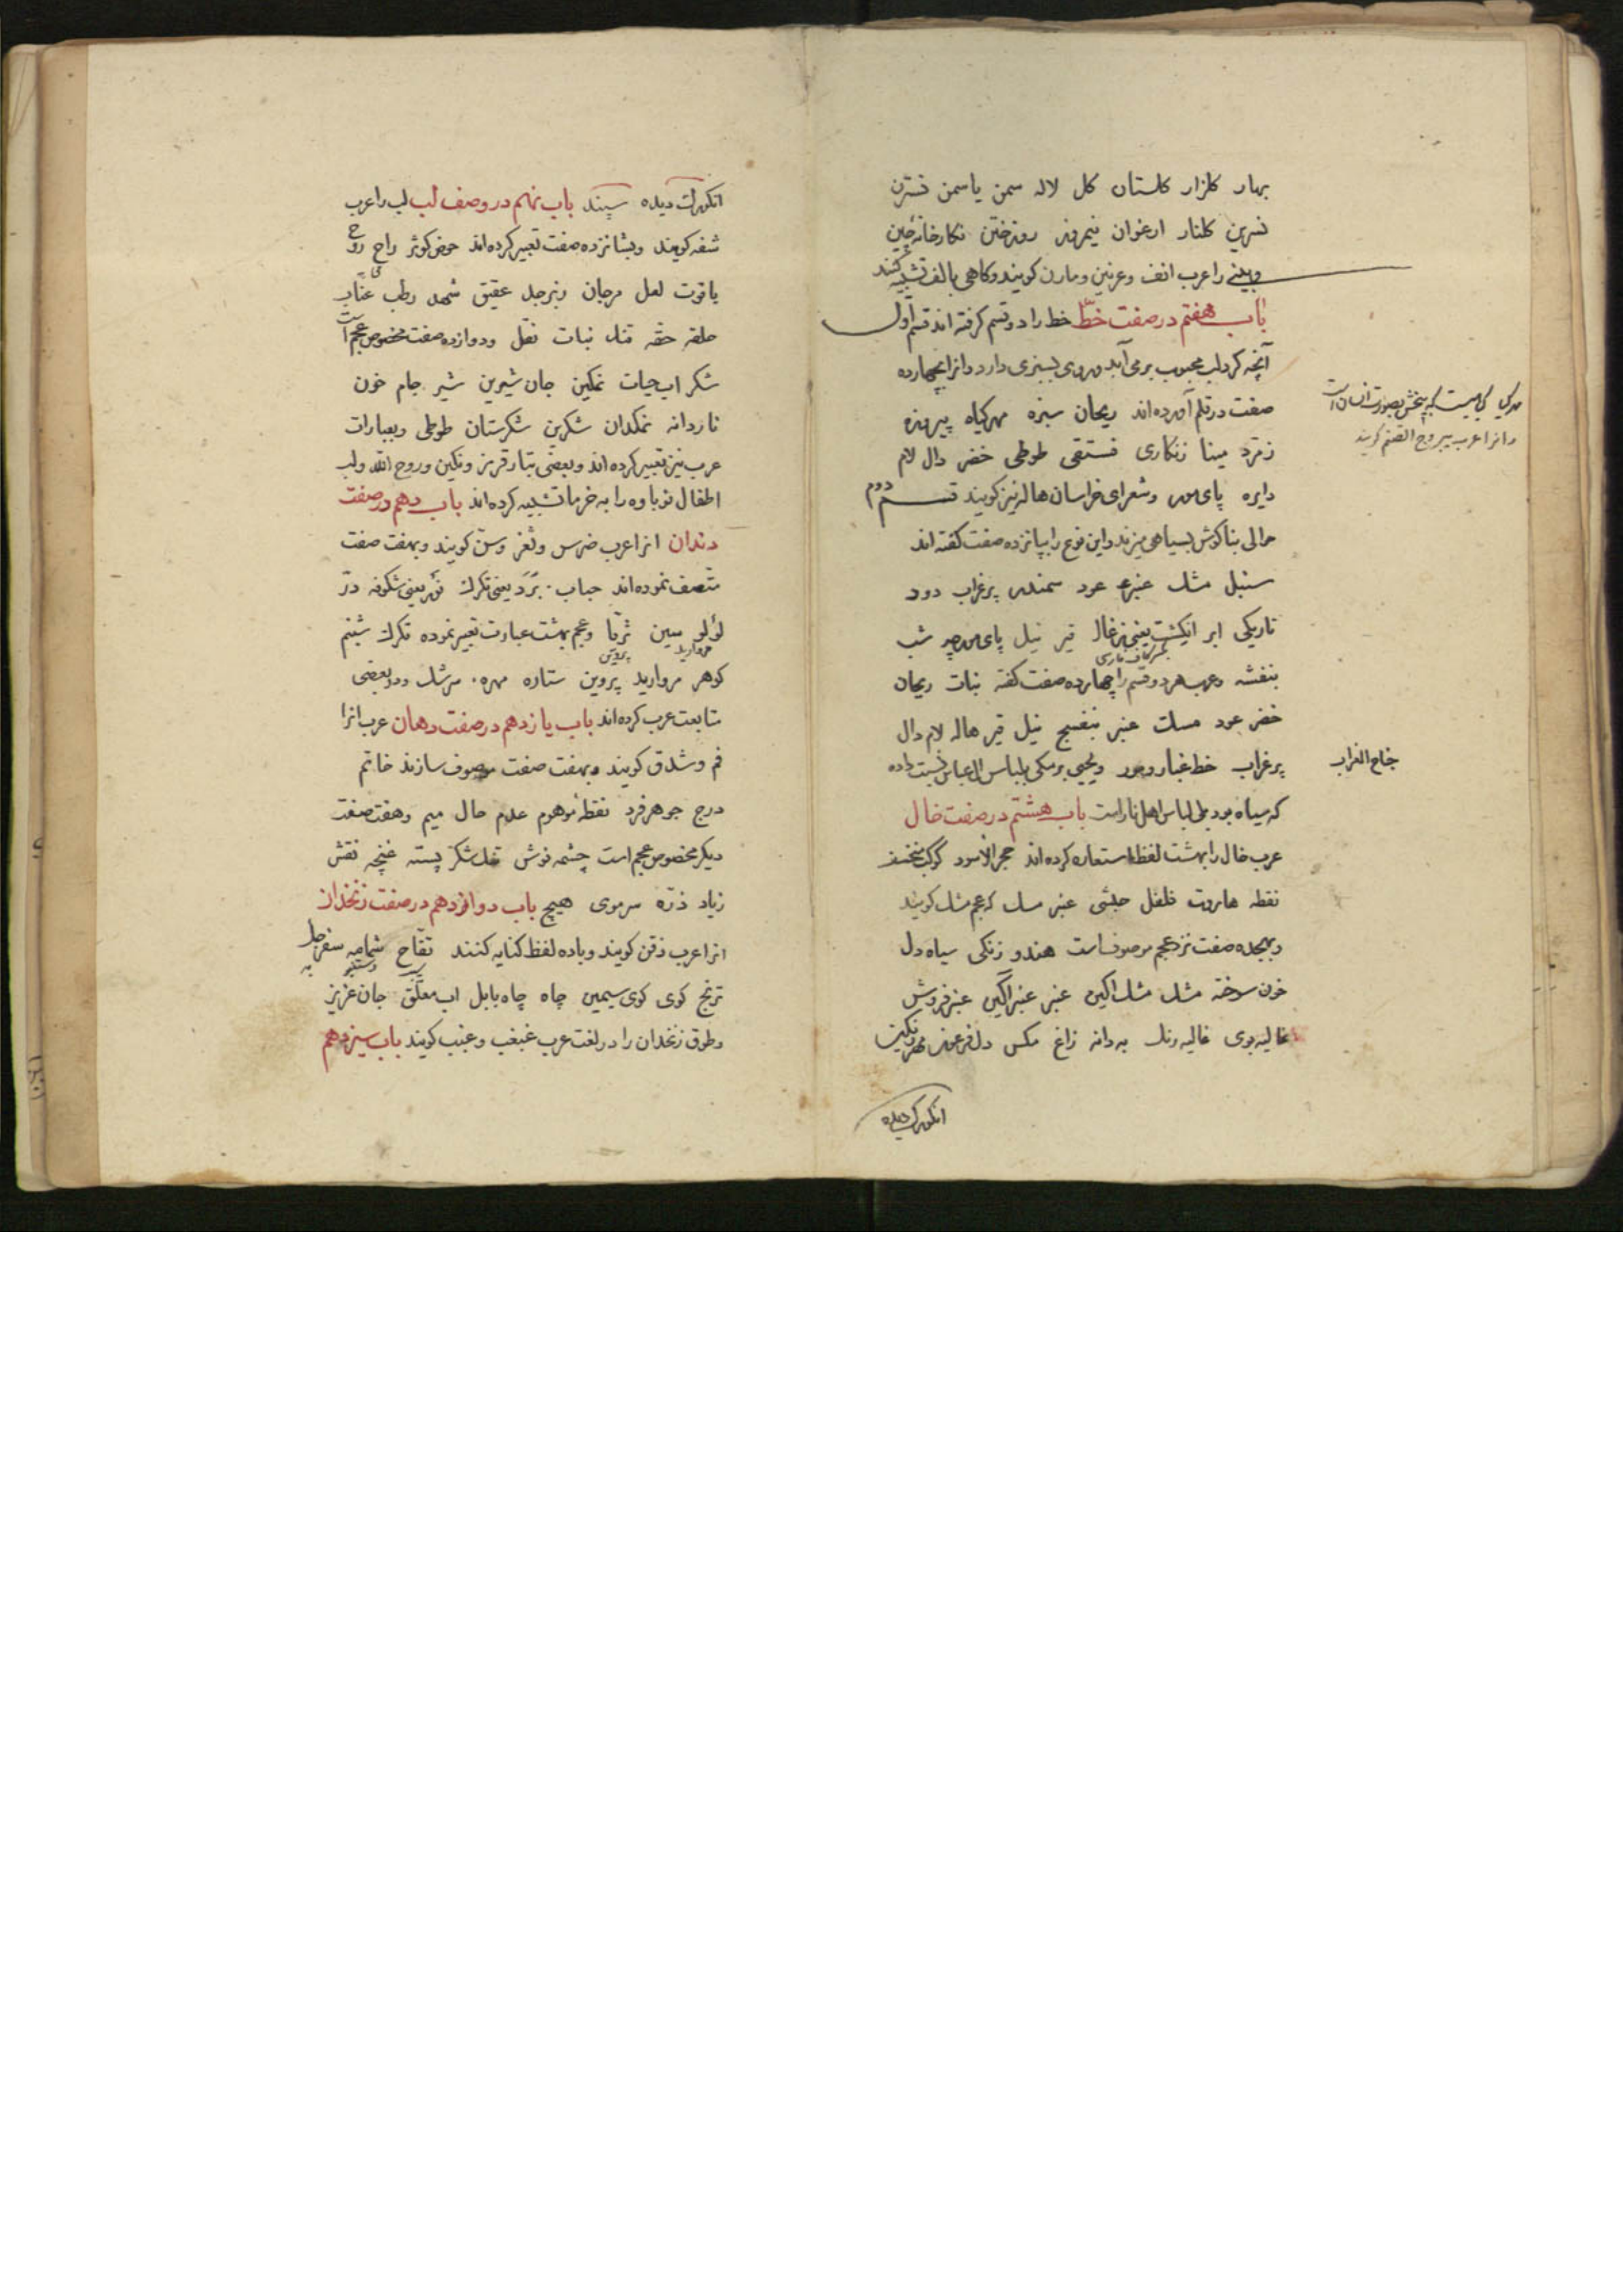 بهار کلزار کلستان کل لاله سمن یاسمن نسترن
نسرین کلنار ارغوان نیمروز روزختن نکارخانه چین
وبینی راعرب انف وعرنین ومارن کویند وکاهی بالف تشبیه کنند
باب هفتم درصفت خطّ خط را دوقسم کرفته اند قسم اول
آنچه کرد لب محبوب برمی آید وروی بسبزی دارد وانرا بچهارده
صفت درقلم آورده اند ریحان سبزه مهرکیاه پیروزه
زمرّد مینا زنکاری فستقی طوطی خضر دال لام
دایره پای مور وشعرای خراسان هاله نیز کویند قسم دوم
حوالی بناکوش بسیاهی میزند واین نوع را بپانزده صفت کفته اند
سنبل مشک عنبر عود سمندر پرغراب دود
تاریکی ابر انکشت یعنی زغال قیر نیل پای مورچه شب
بکسر کاف فارسی
بنفشه وعرب هردو قسم را چهارده صفت کفته نبات ریحان
خضر عود مسک عنبر بنفسج نیل قیر هاله لام دال
پرغراب خط غبار ویحیی برمکی بلباس ال عباس نسبت داده
که سیاه بود بلی لباس اهل نار است باب هشتم درصفت خال
عرب خال را بهشت لفظ استعاره کرده اند حجر الاسود کوکب منخسف
نقطه هاروت فلفل حبشی عنبر مسک که عجم مشک کویند
وبهجده صفت نزد عجم موصوف است هندو زنکی سیاه دل
خون سوخته مشک مشک اکین عنبر عنبر اکین عنبرفروش
غالیه بوی غالیه رنک به دانه زاغ مکس دل فرعون مهر ونکین
انکورک دیده
مهرکیا کیاهیست که بیخش بصورت انسان است
وانرا عرب یبروج الصنم کویند
جناح الغراب
انکورک دیده سپند باب نهم دروصف لب لب را عرب
شفه کویند وبشانزده صفت تعبیر کرده اند حوض کوثر راح روح
یاقوت لعل مرجان زبرجد عقیق شهد رطب عنّاب
حلقه حقه قند نبات نقل ودوازده صفت مخصوص عجم است
شکر اب حیات نمکین جان شیرین شیر جام خون
ناردانه نمکدان شکرین شکرستان طوطی وبعبارات
عرب نیز تعبیر کرده اند وبعضی بتار قرمز ونکین وروح الله ولب
اطفال نوباوه را به خرما تشبیه کرده اند باب دهم درصفت
دندان انرا عرب ضرس وثغر وسنّ کویند وبهفت صفت
متّصف نموده اند حباب بَرَد یعنی تکرک نَور یعنی شکوفه درّ
لؤلؤ سین ثریّا وعجم بهشت عبارت تعبیر نموده تکرک شبنم
مروارید پروین
کوهر مروارید پروین ستاره مهره سرشک ودو بعضی
متابعت عرب کرده اند باب یازدهم درصفت دهان عرب انرا
فم وشدق کویند وبهفت صفت موصوف سازند خاتم
درج جوهرفرد نقطهٔ موهوم عدم حال میم وهفت صفت
دیکر مخصوص عجم است چشمه نوش تنک شکر پسته غنچه نقش
زیاد ذرّه سرموی هیچ باب دوازدهم درصفت زنخدان
انرا عرب ذقن کویند وباده لفظ کنایه کنند تفّاح شمامه سفرجل
سیب دستنبو به
ترنج کوی کوی سیمین چاه چاه بابل اب معلّق جان عزیز
وطوق زنخدان را درلغت عرب غبغب وغبب کویند باب سیزدهم